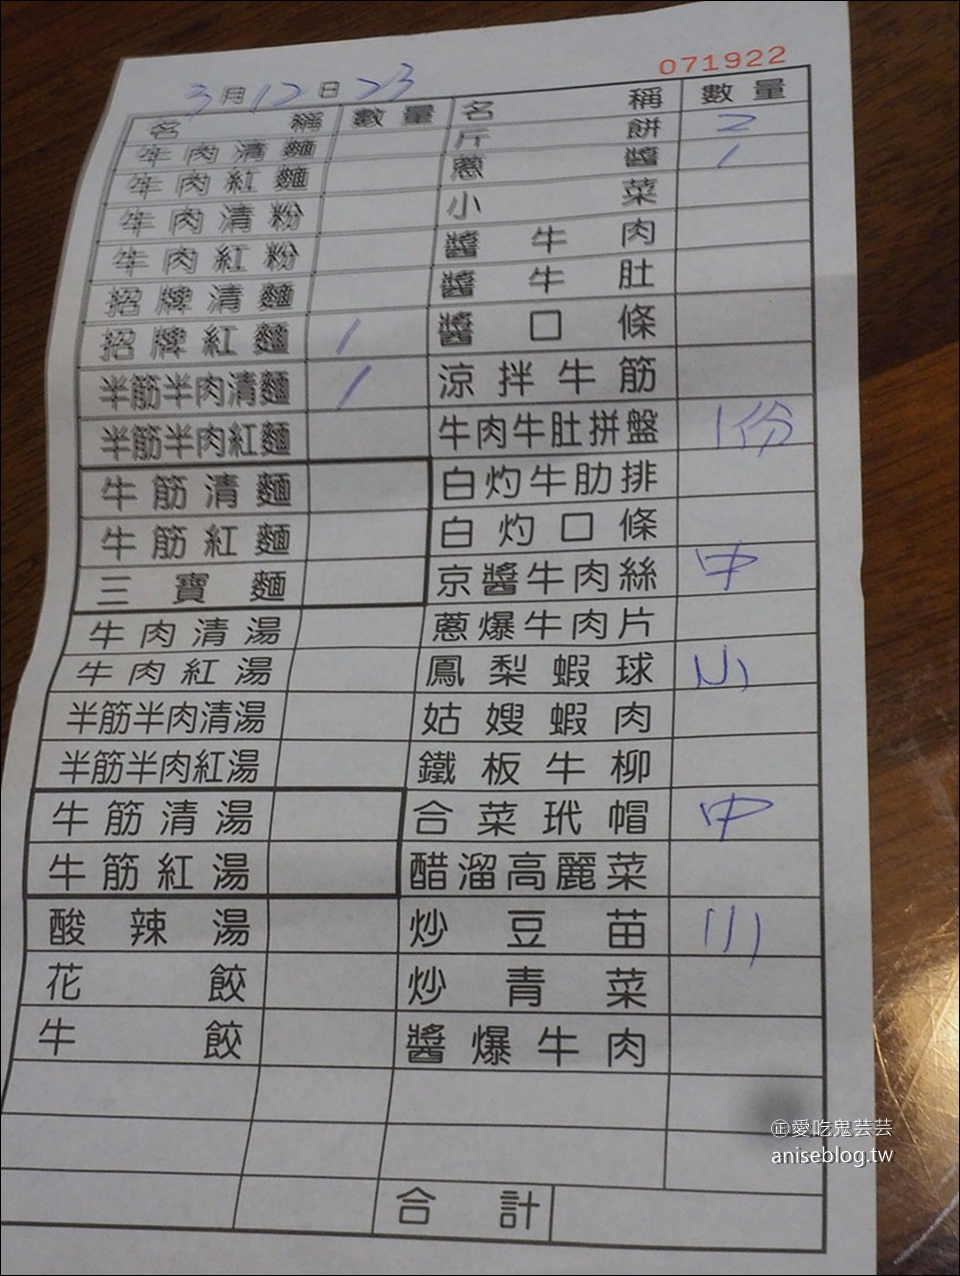 071922
3月12日 23
名稱 數量 名稱 數量
牛肉清麵 斤餅 2
牛肉紅麵 蔥醬 1
牛肉清粉 小菜
牛肉紅粉 醬牛肉
招牌清麵 醬牛肚
招牌紅麵 1 醬口條
半筋半肉清麵 1 涼拌牛筋
半筋半肉紅麵 牛肉牛肚拼盤 1份
牛筋清麵 白灼牛肋排
牛筋紅麵 白灼口條
三寶麵 京醬牛肉絲 中
牛肉清湯 蔥爆牛肉片
牛肉紅湯 鳳梨蝦球 小
半筋半肉清湯 姑嫂蝦肉
半筋半肉紅湯 鐵板牛柳
牛筋清湯 合菜玳帽 中
牛筋紅湯 醋溜高麗菜
酸辣湯 炒豆苗 小
花餃 炒青菜
牛餃 醬爆牛肉
合計
㊣愛吃鬼芸芸
aniseblog.tw